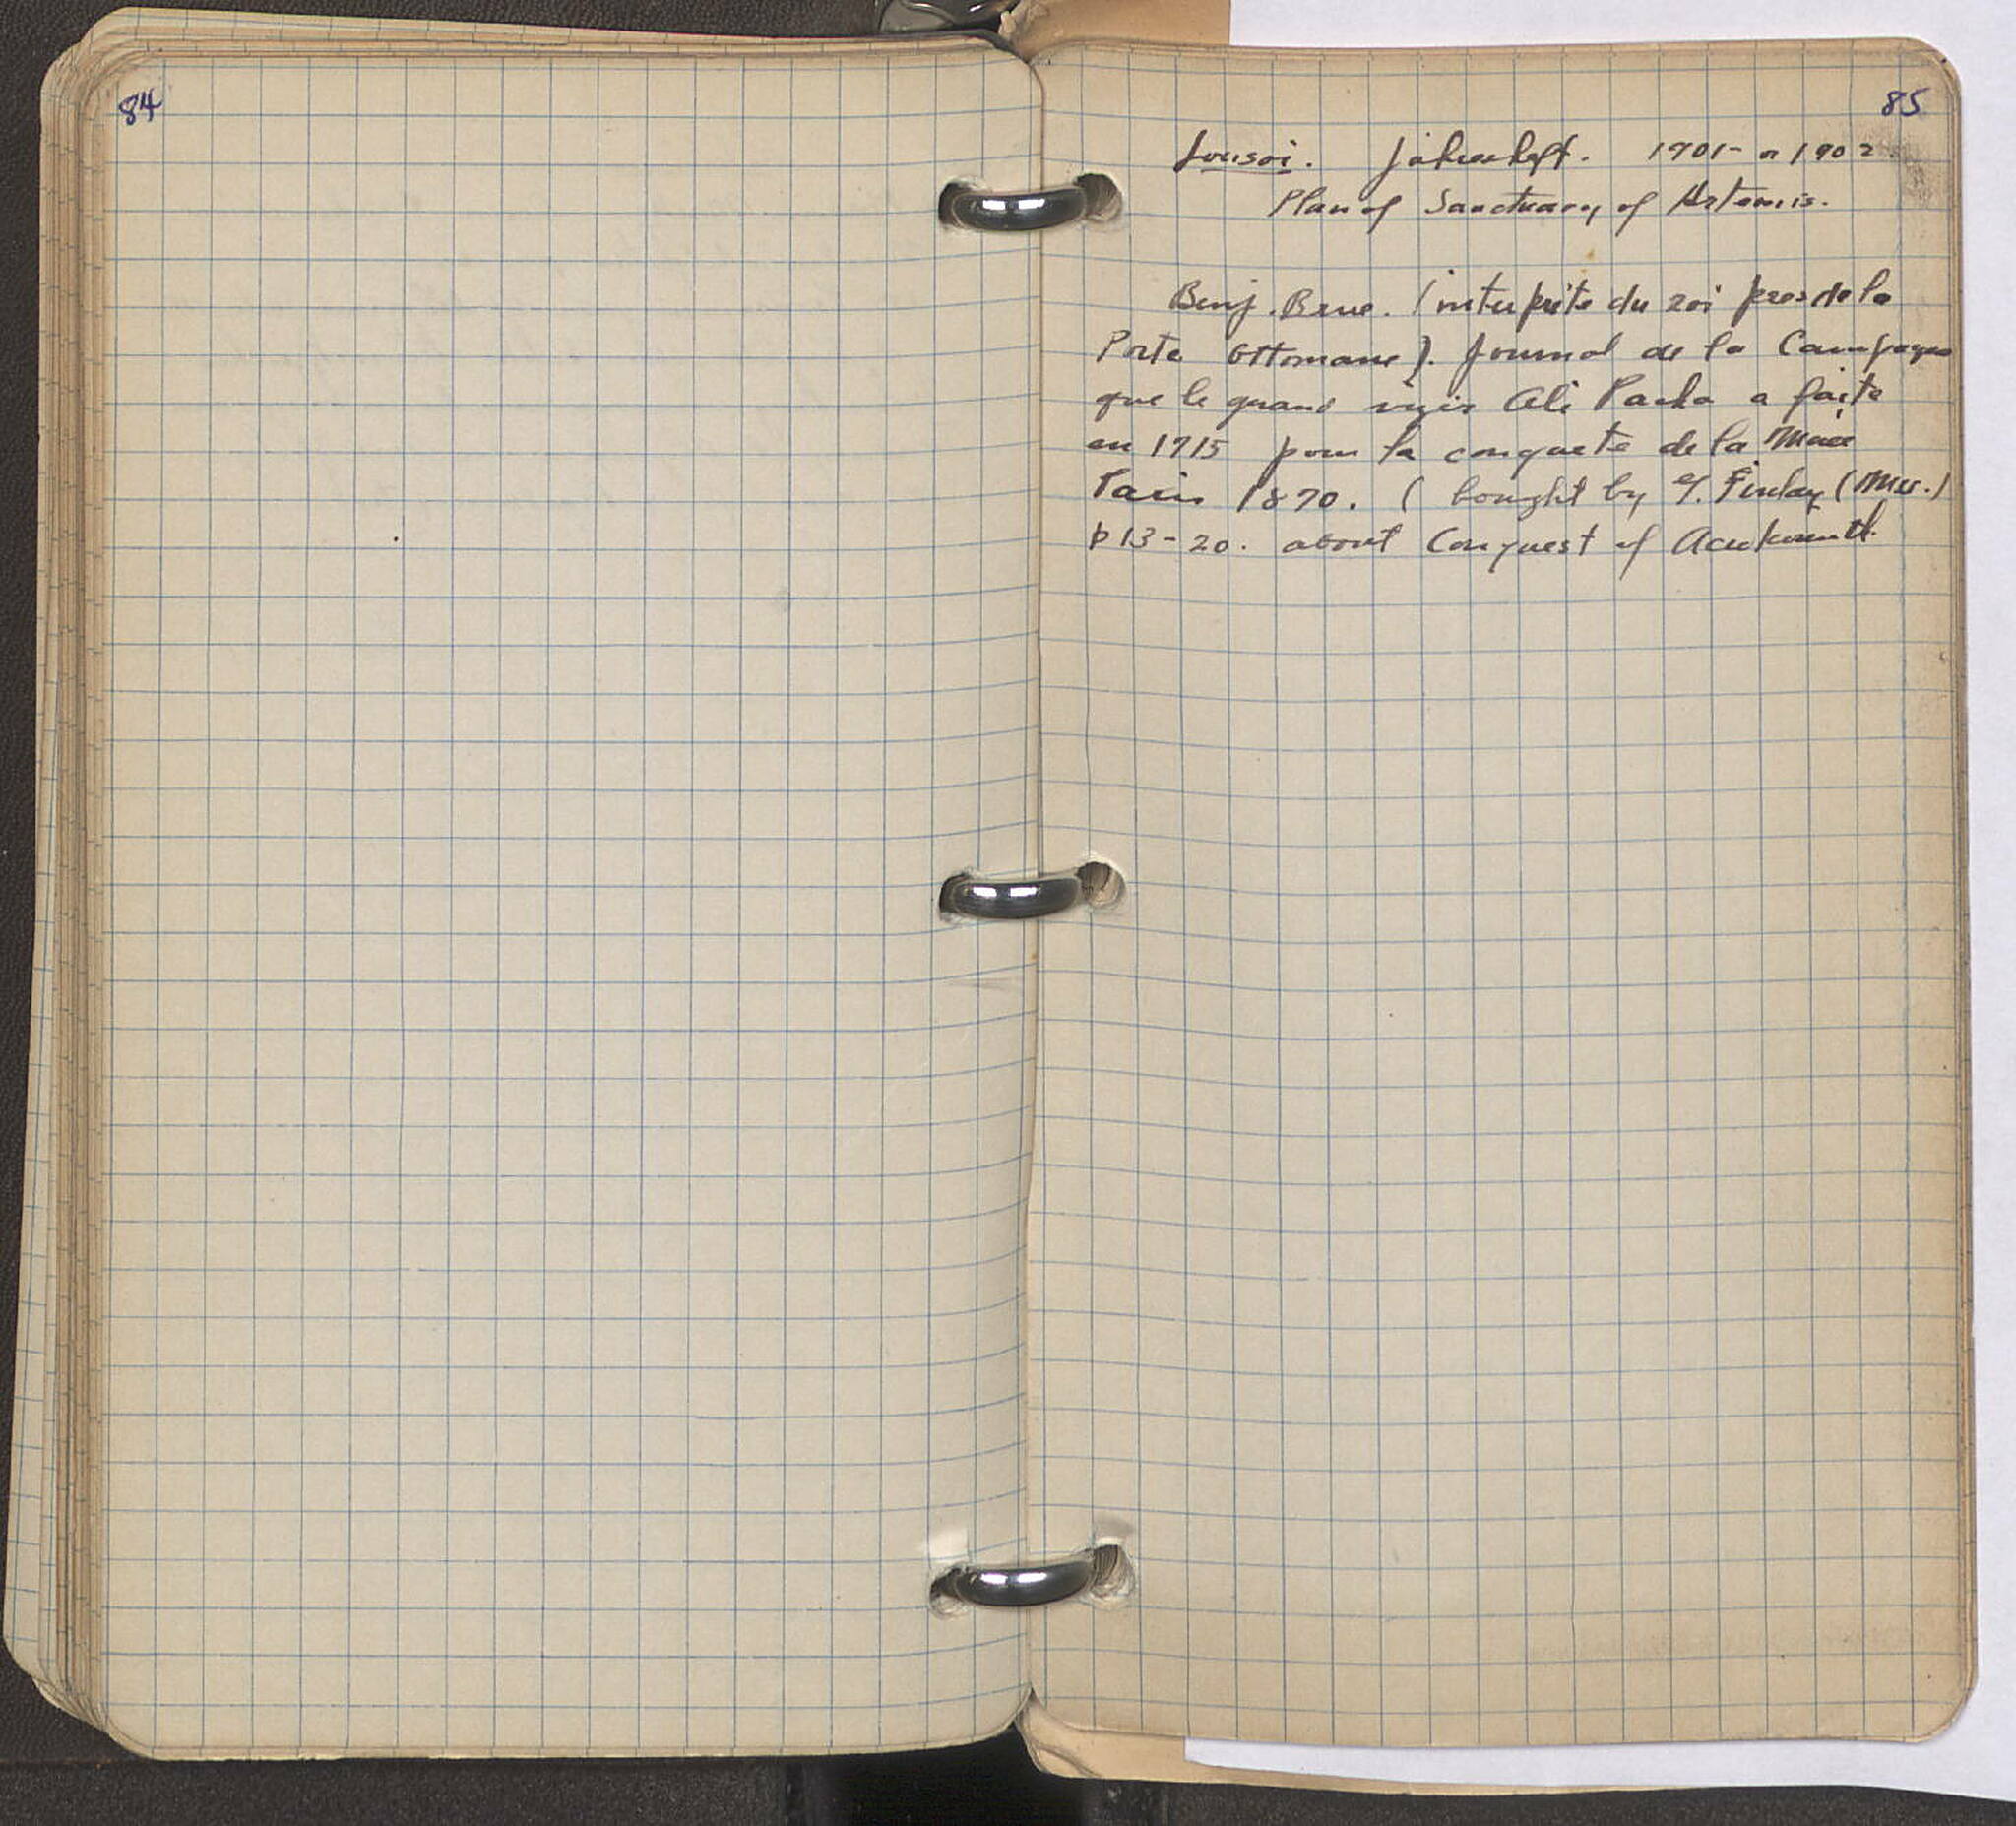 84
85
Lousoi. Jahresheft. 1901- or 1902
Plan of Sanctuary of Artemis.
Benj. Brue. (interprète du roi près de la
Porte Ottomane). Journal de la Campagne
que le grand vizir Ali Pacha a faite
en 1715 pour la conquete de la Morée
Paris 1870. (bought by G. Finlay (Mss.)
p 13-20. about Conquest of Acrokorinth.